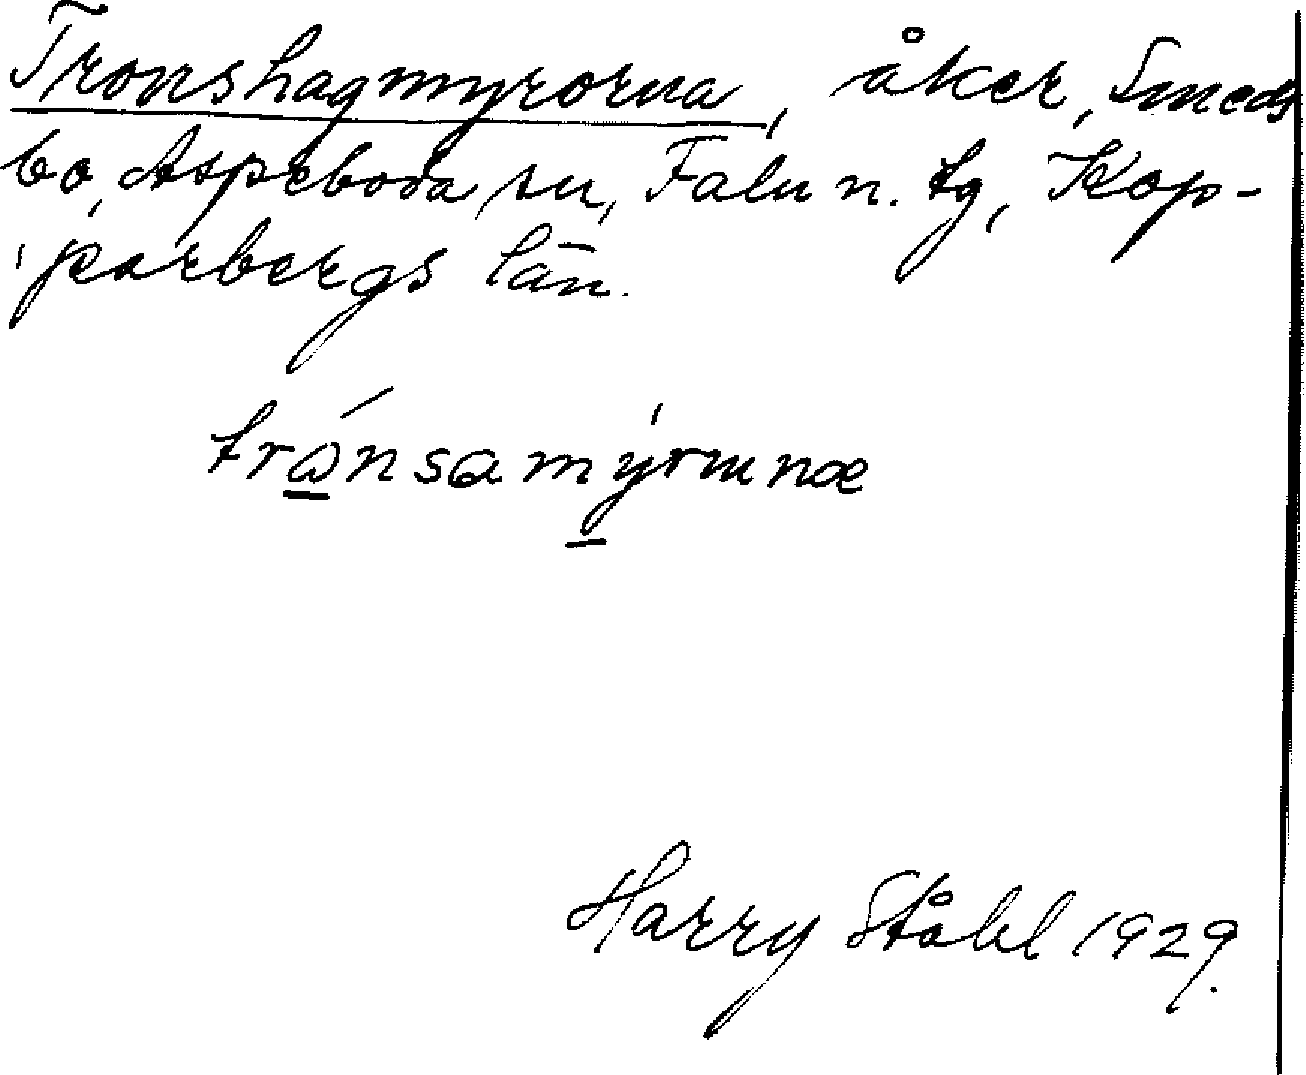 Tronshagmyrorna, åker, Smeds
bo, Aspeboda sn, Falu n. tg, Kop-
parbergs län.
Harry Ståhl 1929.